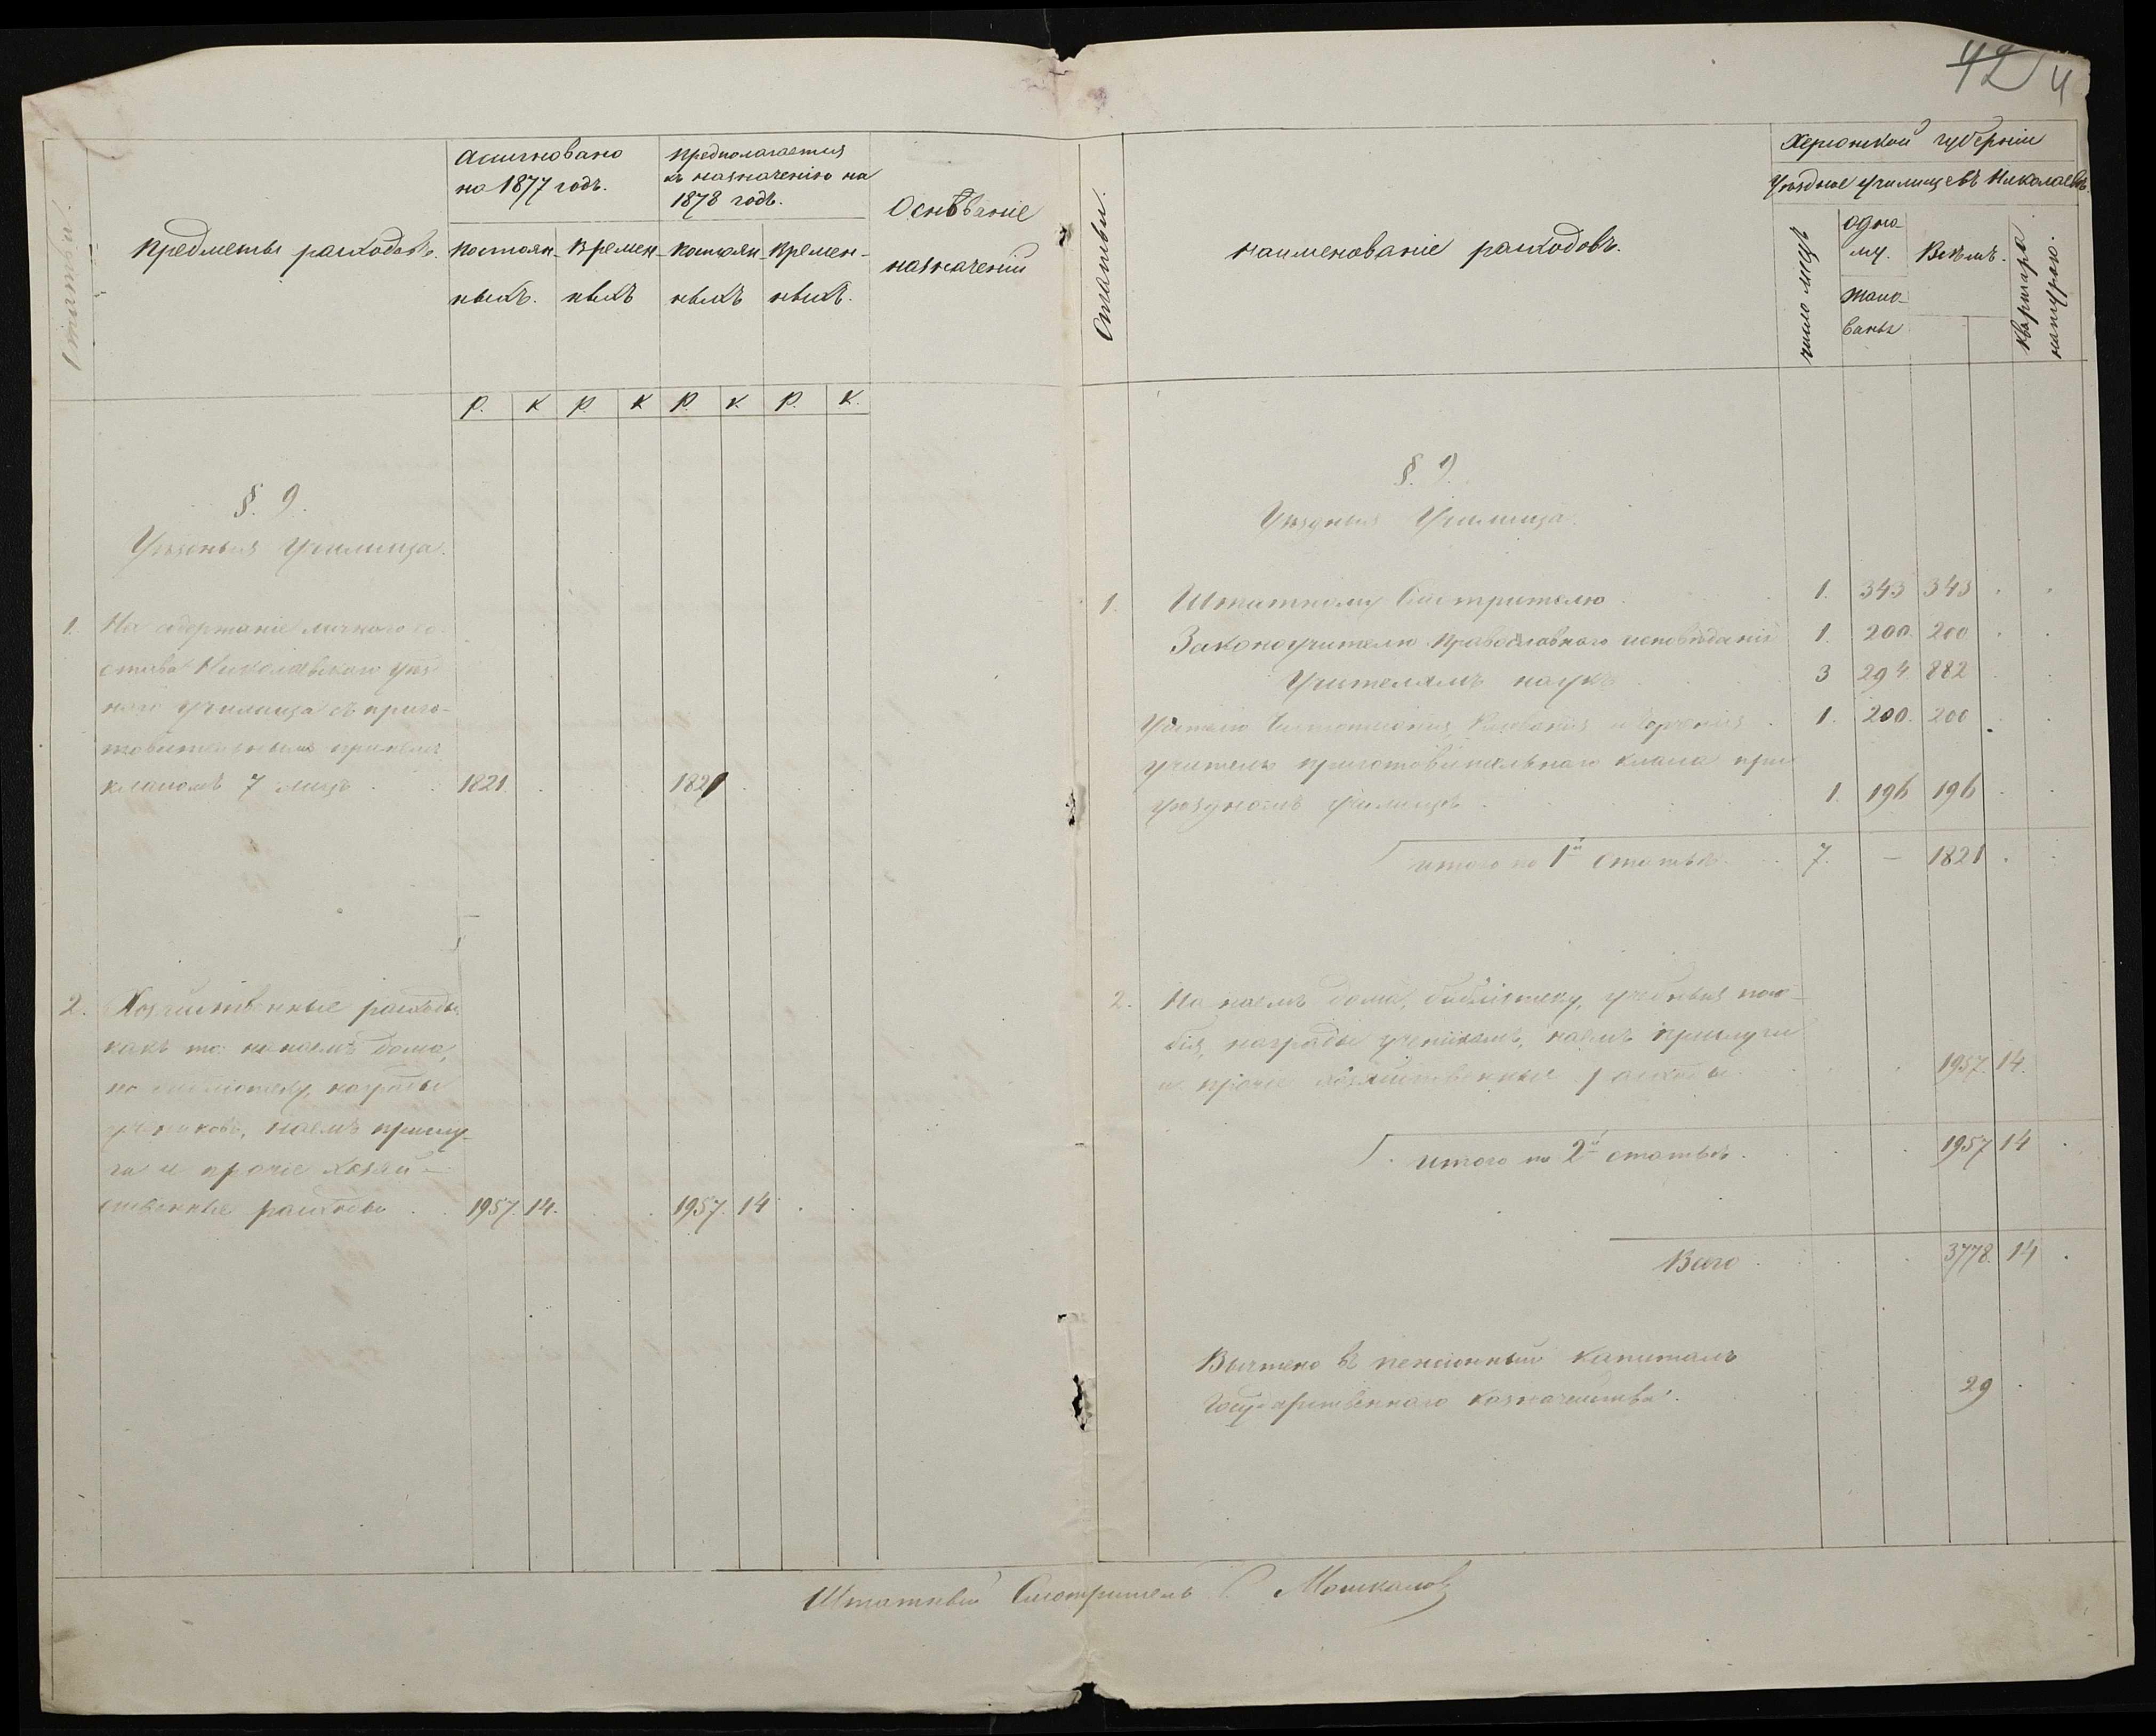 42 4
Статьи.
Предметы расходовъ.
Ассигновано
на 1877 годъ.
Предполагается
къ назначенію на
1878 годъ.
Постоян-
ныхъ.
Времен-
ныхъ
Постоян-
ныхъ
Времен-
ныхъ.
Основаніе
назначеній
Р. К Р. К Р. К Р. К.
§. 9.
Уѣздныя Училища.
1. На содержаніе личнаго со-
става Николаевскаго Уѣзд
наго Училища съ приго-
товительнымъ при немъ
классомъ 7 лицъ 1821. 1821
2. Хозяйственные расходы
какъ то: на наемъ дома,
на библіотеку, награды
учениковъ, наемъ прислу-
ги и прочіе хозяй-
ственные расходы 1957. 14. 1957. 14
Статьи.
Наименованіе расходовъ.
Херсонской губерніи
Уѣздное училище въ Николаевѣ.
Число лицъ
Одно-
му.
Жало-
ванья
Всѣмъ.
Квартира
натурою.
§. 9.
Уѣздныя Училища.
1. Штатному Смотрителю 1. 343 343
Законоучителю Православнаго исповѣданія 1. 200. 200
Учителямъ наукъ 3 294. 882
Учителю Чистописанія, Рисованія и Черченія 1. 200. 200
Учителю приготовительнаго класса при
уѣздномъ училищѣ 1. 196 196
Итого по 1й статьѣ 7. — 1821
2. На наемъ дома, библіотеку, учебныя посо-
бія, награды ученикамъ, наемъ прислуги
и прочіе хозяйственные расходы 1957. 14.
Итого по 2й статьѣ. 1957 14
Всего 3778. 14
Вычтено въ пенсіонный капиталъ
Государственнаго Казначейства. 29
Штатный Смотритель Мошкалов